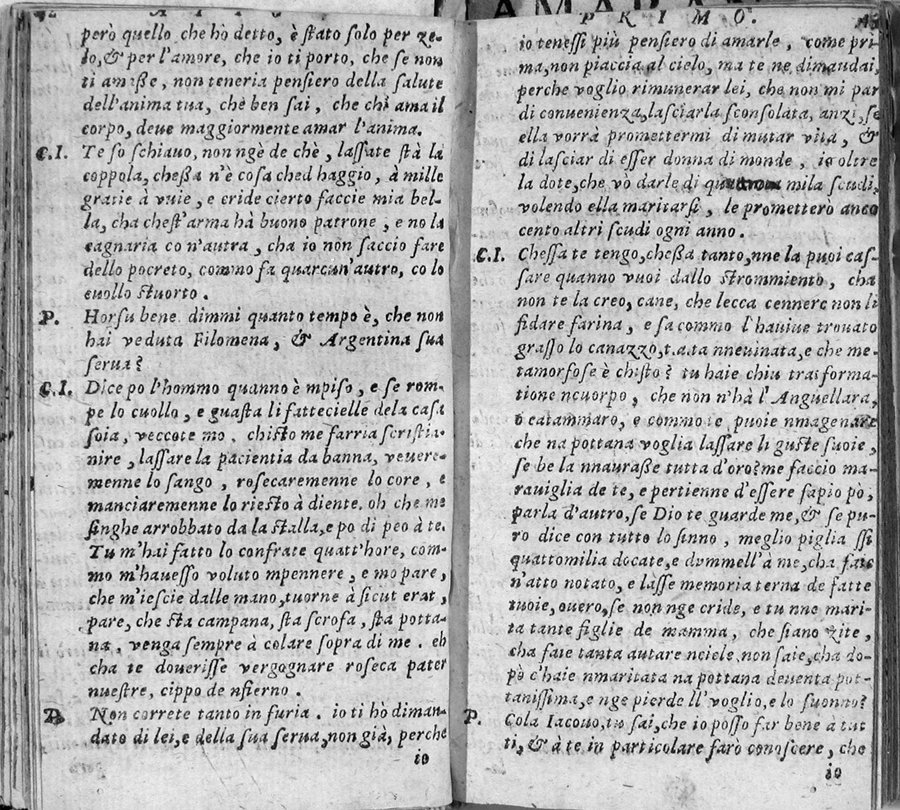 ATTO
però quello che hò detto, è stato solo per ze-
lo, & per l'amore, che io ti porto, che se non
ti amasse, non teneria pensiero della salute
dell'anima tua, che ben sai, che chi ama il
corpo, deue maggiormente amar l'anima.
C.I. Te so schiauo, non ngè de chè, lassate stà la
coppola, chessa n'è cosa ched haggio, à mille
gratie à vuie, e cride cierto faccie mia bel-
la, cha chest'arma hà buono patrone, e no la
cagnaria co n'autra, cha io non saccio fare
dello pocreto, commo fa quarcun'autro, co lo
cuollo stuorto.
P. Horsu bene. dimmi quanto tempo è, che non
hai veduta Filomena, & Argentina sua
serua?
C.I. Dice po l'hommo quanno è mpiso, e se rom-
pe lo cuollo, e guasta li fattecielle dela casa
soia, veccote mo. chisto me farria scristia-
nire, lassare la pacientia da banna, veuere-
menne lo sango, rosecaremenne lo core, e
manciaremenne lo riesto à diente. oh che me
singhe arrobbato da la stalla, e po di peo à te.
Tu m'hai fatto lo confrate quatt'hore, com-
mo m'hauesso voluto mpennere, e mo pare,
che m'iescie dalle mano, tuorne à sicut erat,
pare, che sta campana, sta scrofa, sta potta-
na, venga sempre à colare sopra di me. eh
cha te douerisse vergognare roseca pater
nuestre, cippo de nfierno.
P. Non correte tanto in furia. io ti hò diman-
dato di lei, e della sua serua, non già, perche
io
PRIMO.
io tenessi più pensiero di amarle, come pri-
ma, non piaccia al cielo, ma te ne dimandai,
perche voglio rimunerar lei, che non mi par
di conuenienza, lasciarla sconsolata, anzi, se
ella vorrà promettermi di mutar vita, &
di lasciar di esser donna di monde, io oltre
la dote, che vò darle di quattro mila scudi,
volendo ella maritarsi, le prometterò anco
cento altri scudi ogni anno.
C.I. Chessa te tengo, chessa tanto, nne la puoi cas-
sare quanno vuoi dallo strommiento, cha
non te la creo, cane, che lecca cennere non li
fidare farina, e sa commo l'hauiue trouato
grasso lo canazzo, t.a.ta nneuinata, e che me-
tamorfose è chisto? tu haie chiu trasforma-
tione ncuorpo, che non n'hà l'Anguellara,
o catammaro, e commo te puoie nmagenare
che na pottana voglia lassare li guste suoie,
se be la nnaurasse tutta d'oro? me faccio ma-
rauiglia de te, e pertienne d'essere sapio pò,
parla d'autro, se Dio te guarde me, & se pu-
ro dice con tutto lo sinno, meglio piglia ssi
quattomilia docate, e dommell'à me, cha faie
n'atto notato, e lasse memoria terna de fatte
tuoie, ouero, se non nge cride, e tu nne mari-
ta tante figlie de mamma, che siano zite,
cha faie tanta autare nciele, non saie, cha do-
pò c'haie nmaritata na pottana deuenta pot-
tanissima, e nge pierde ll'voglio, e lo suonno?
P. Cola Iacouo, tu sai, che io posso far bene à tut
ti, & à te in particolare farò conoscere, che
io